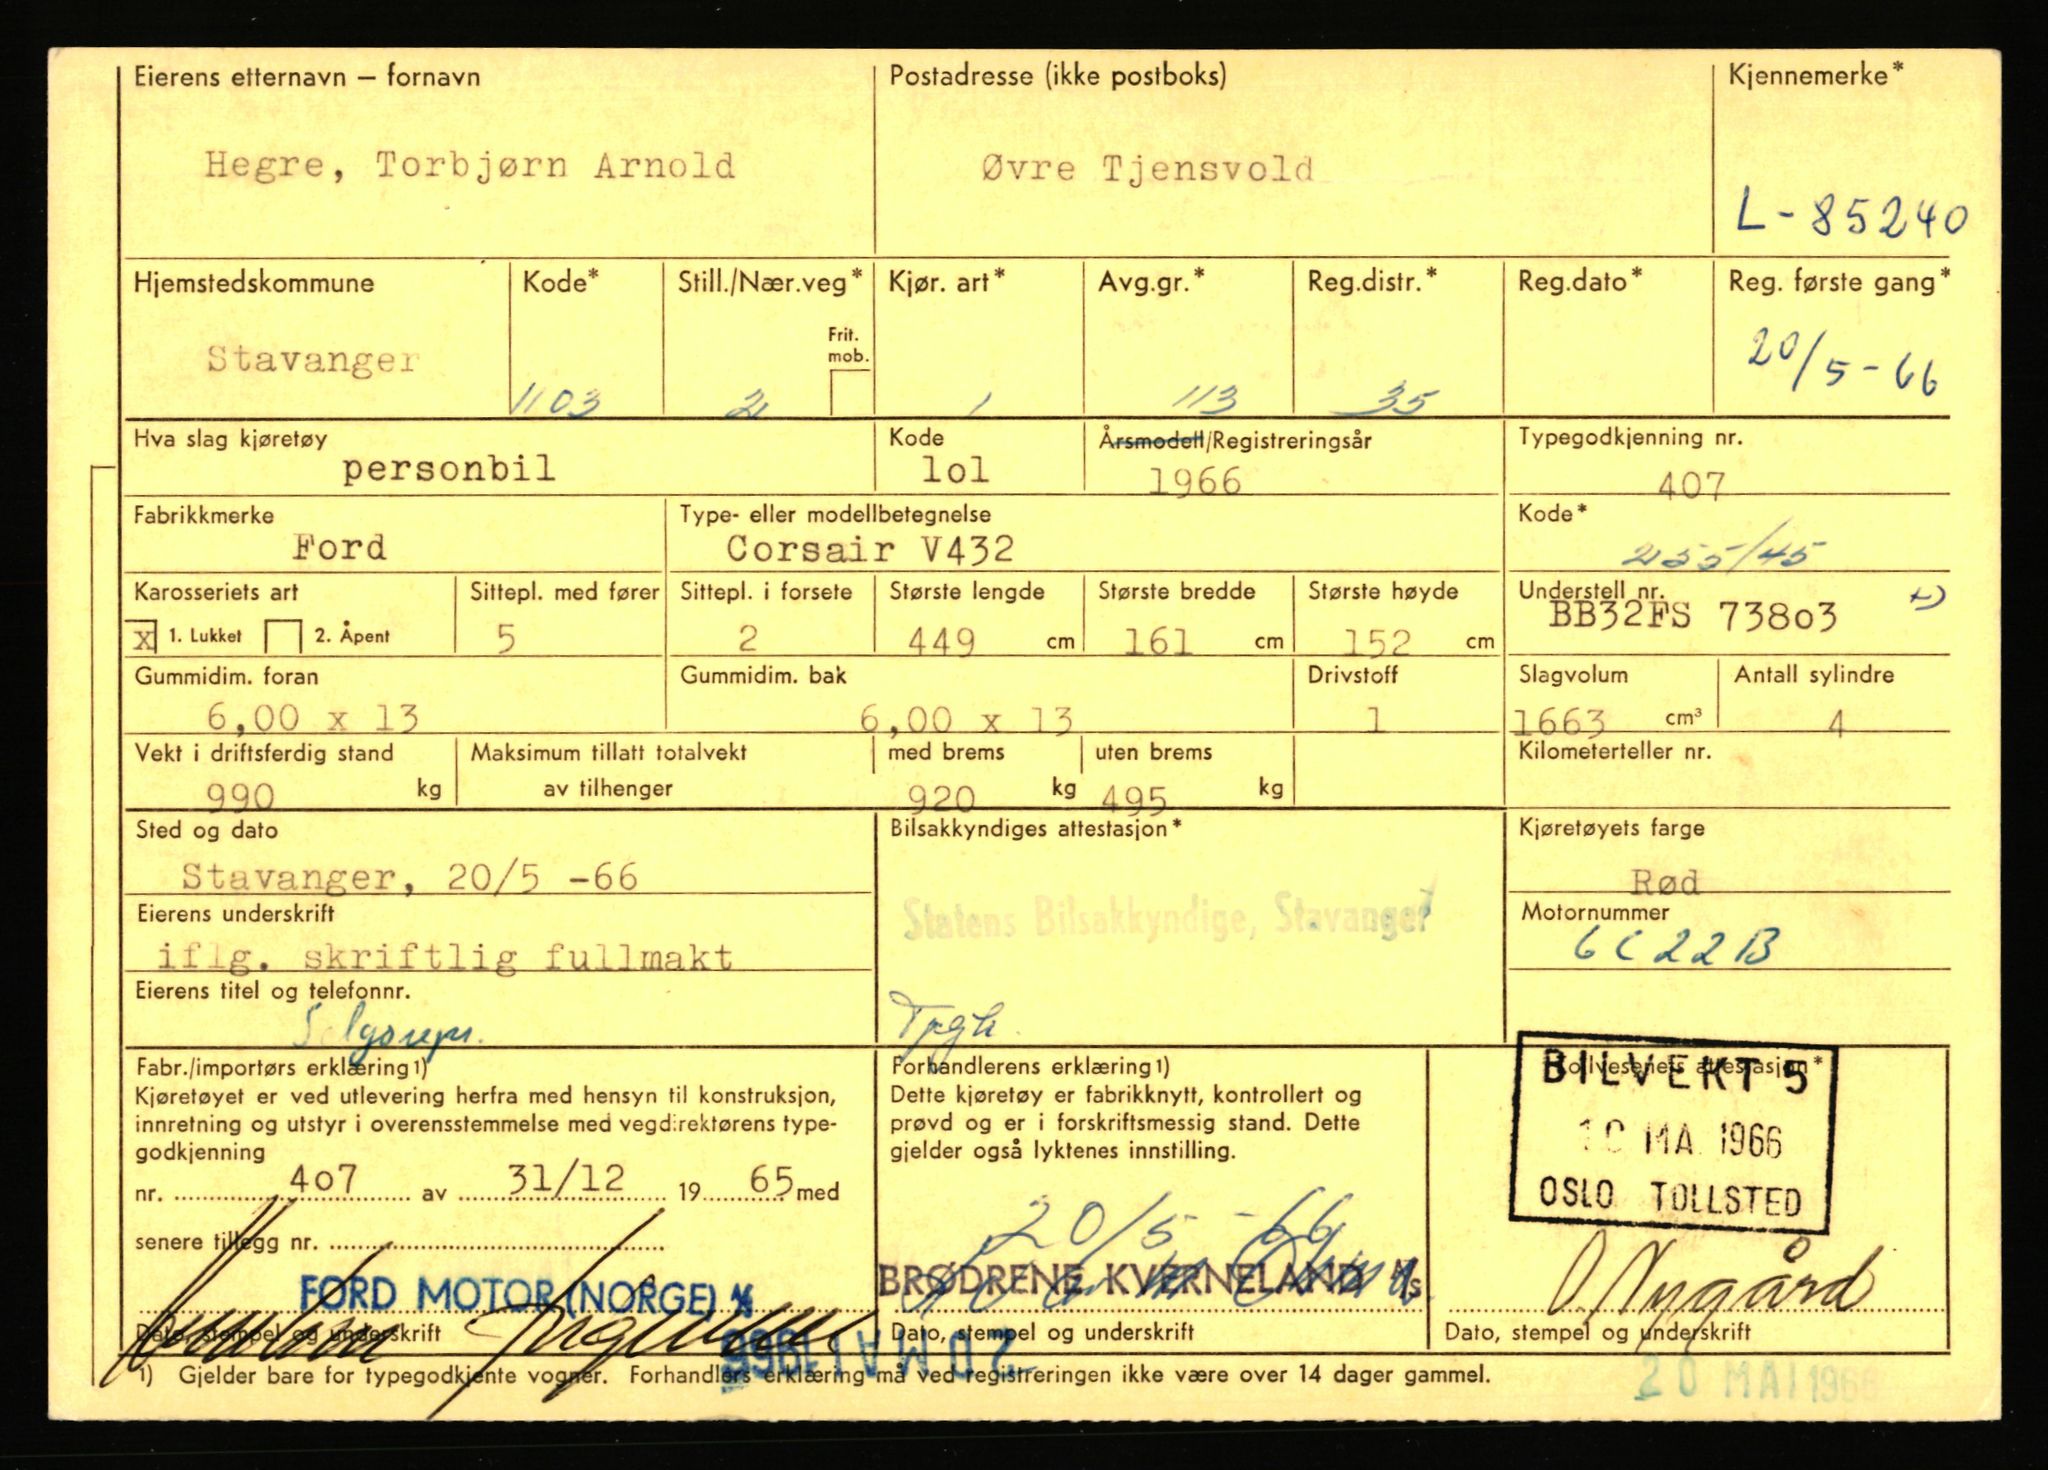 Eierens etternavn – fornavn
Hegre, Torbjørn Arnold
Postadresse (ikke postboks)
Øvre Tjensvold
Kjennemerke*
L-85240
Hjemstedskommune
Stavanger
Kode*
1103
Still./Nær.veg*
2
Frit.
mob.
Kjør. art*
1
Avg.gr.*
113
Reg.distr.*
35
Reg.dato*
Reg. første gang*
20/5-66
Hva slag kjøretøy
personbil
Kode
lol
Årsmodell/Registreringsår
1966
Typegodkjenning nr.
407
Fabrikkmerke
Ford
Type- eller modellbetegnelse
Corsair V432
Kode*
255/45
Karosseriets art
X 1. Lukket 2. Åpent
Sittepl. med fører
5
Sittepl. i forsete
2
Største lengde
449 cm
Største bredde
161 cm
Største høyde
152 cm
Understell nr.
BB32FS 738o3
Gummidim. foran
6,00 x 13
Gummidim. bak
6,00 x 13
Drivstoff
1
Slagvolum
1663 cm³
Antall sylindre
4
Vekt i driftsferdig stand
990 kg
Maksimum tillatt totalvekt
av tilhenger
med brems
920 kg
uten brems
495 kg
Kilometerteller nr.
Sted og dato
Stavanger, 20/5 -66
Bilsakkyndiges attestasjon*
Statens Bilsakkyndige, Stavanger
Kjøretøyets farge
Rød
Eierens underskrift
iflg. skriftlig fullmakt
Motornummer
6C22B
Eierens titel og telefonnr.
Fabr./importørs erklæring 1)
Kjøretøyet er ved utlevering herfra med hensyn til konstruksjon,
innretning og utstyr i overensstemmelse med vegdirektørens type-
godkjenning
nr. 4o7 av 31/12 19 65 med
senere tillegg nr.
FORD MOTOR (NORGE) A/S
Dato, stempel og underskrift
Forhandlerens erklæring 1)
Dette kjøretøy er fabrikknytt, kontrollert og
prøvd og er i forskriftsmessig stand. Dette
gjelder også lyktenes innstilling.
20/5-66
BRØDRENE KVERNELAND A/s
Dato, stempel og underskrift
20 MAI 1966
Tollvesenets attestasjon*
BILVEKT 5
10 MA 1966
OSLO TOLLSTED
O Nygård
Dato, stempel og underskrift
1) Gjelder bare for typegodkjente vogner. Forhandlers erklæring må ved registreringen ikke være over 14 dager gammel.
20 MAI 1966